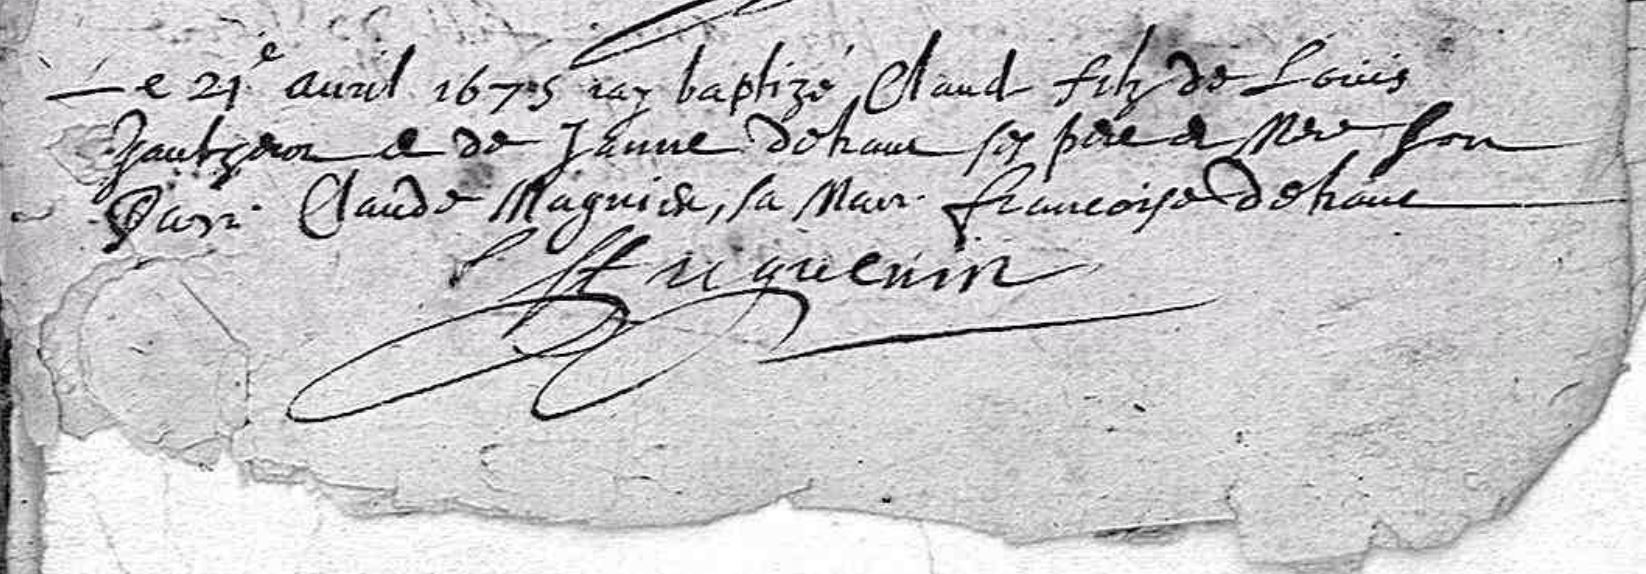 Le 21e auril 1675 iay baptizé Claud filz de Louis
et de Janne dehaut ses pere et Mere Son
Parr. Claude Magnien, sa Marr. francoise dehaut
Huguenin